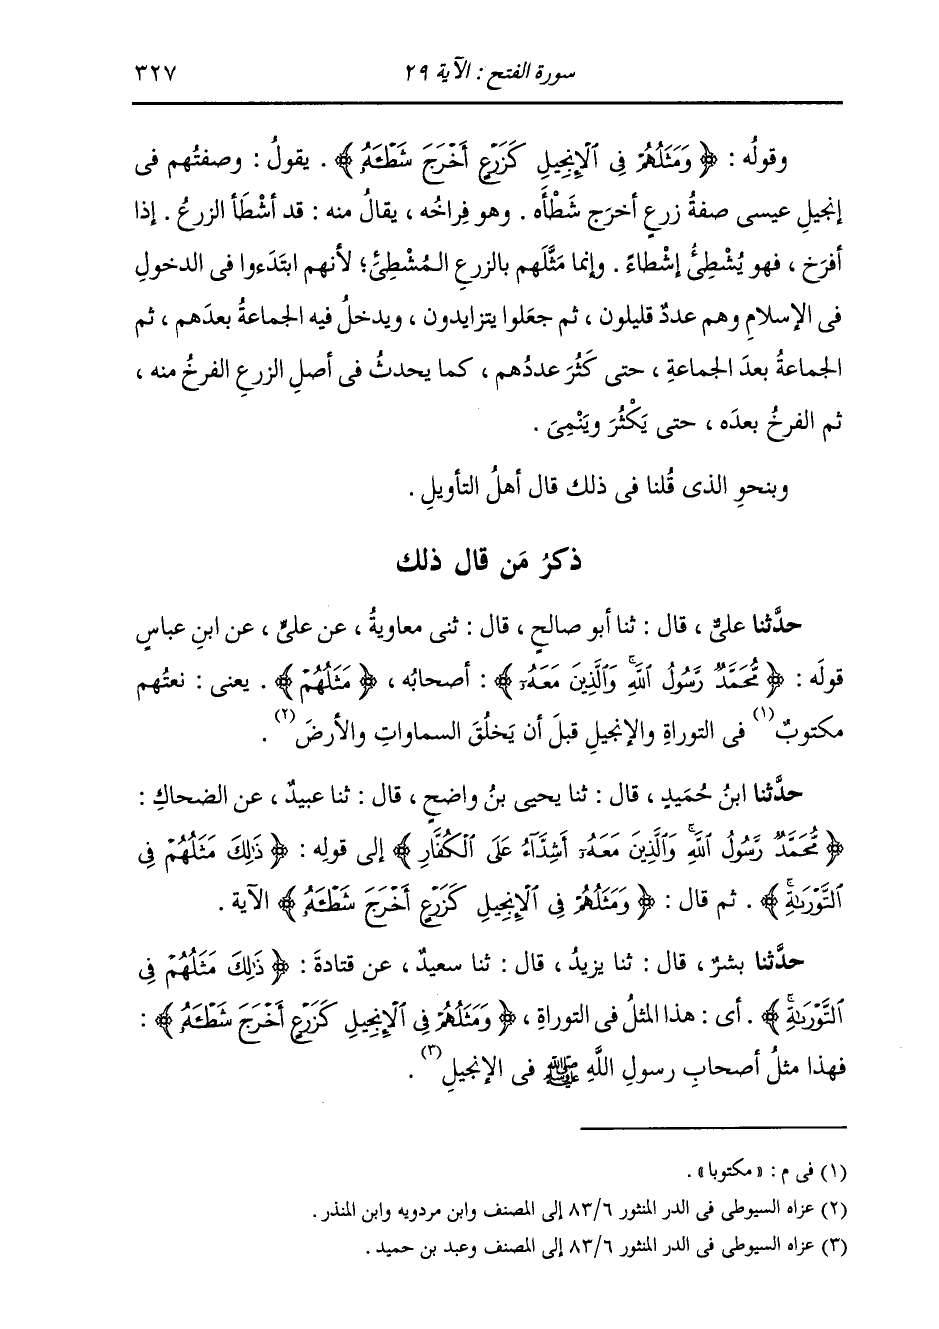 سورة الفتح : الآية ٢٩ ٣٢٧
وقولُه : ﴿ وَمَثَلُهُمْ فِى ٱلْإِنجِيلِ كَزَرْعٍ أَخْرَجَ شَطْـَٔهُ ﴾ . يقولُ : وصفتُهم فى
إنجيلِ عيسى صفةُ زرعٍ أخرَج شَطْأَه . وهو فِراخُه ، يقالُ منه : قد أشْطَأ الزرعُ . إذا
أفرَخ ، فهو يُشْطِئُ إشْطاءً . وإنما مَثَّلَهم بالزرعِ المُشْطِئِ؛ لأنهم ابتَدَءوا فى الدخولِ
فى الإسلامِ وهم عددٌ قليلون ، ثم جعَلوا يتزايدون ، ويدخلُ فيه الجماعةُ بعدَهم ، ثم
الجماعةُ بعدَ الجماعةِ ، حتى كَثُرَ عددُهم ، كما يحدثُ فى أصلِ الزرعِ الفرخُ منه ،
ثم الفرخُ بعدَه ، حتى يَكْثُرَ ويَنْمِىَ .
وبنحوِ الذى قُلنا فى ذلك قال أهلُ التأويلِ .
ذكرُ مَن قال ذلك
حدَّثنا علىٌّ ، قال : ثنا أبو صالحٍ ، قال : ثنى معاويةُ ، عن علىٍّ ، عن ابنِ عباسٍ
قولَه : ﴿ مُّحَمَّدٌ رَّسُولُ ٱللَّهِ ۚ وَٱلَّذِينَ مَعَهُۥٓ ﴾ : أصحابُه ، ﴿ مَثَلُهُمْ ﴾ . يعنى : نعتُهم
مكتوبٌ(١) فى التوراةِ والإنجيلِ قبلَ أن يَخلُقَ السماواتِ والأرضَ(٢) .
حدَّثنا ابنُ حُمَيدٍ ، قال : ثنا يحيى بنُ واضحٍ ، قال : ثنا عبيدٌ ، عن الضحاكِ :
﴿ مُّحَمَّدٌ رَّسُولُ ٱللَّهِ ۚ وَٱلَّذِينَ مَعَهُۥٓ أَشِدَّآءُ عَلَى ٱلْكُفَّارِ ﴾ إلى قولِه : ﴿ ذَٰلِكَ مَثَلُهُمْ فِى
ٱلتَّوْرَىٰةِ ۚ ﴾ . ثم قال : ﴿ وَمَثَلُهُمْ فِى ٱلْإِنجِيلِ كَزَرْعٍ أَخْرَجَ شَطْـَٔهُ ﴾ الآية .
حدَّثنا بشرٌ ، قال : ثنا يزيدُ ، قال : ثنا سعيدٌ ، عن قتادةَ : ﴿ ذَٰلِكَ مَثَلُهُمْ فِى
ٱلتَّوْرَىٰةِ ۚ ﴾ . أى : هذا المثلُ فى التوراةِ ، ﴿ وَمَثَلُهُمْ فِى ٱلْإِنجِيلِ كَزَرْعٍ أَخْرَجَ شَطْـَٔهُ ﴾ :
فهذا مثلُ أصحابِ رسولِ اللَّهِ ﷺ فى الإنجيلِ(٣) .
(١) فى م : «مكتوبا» .
(٢) عزاه السيوطى فى الدر المنثور ٨٣/٦ إلى المصنف وابن مردويه وابن المنذر .
(٣) عزاه السيوطى فى الدر المنثور ٨٣/٦ إلى المصنف وعبد بن حميد .